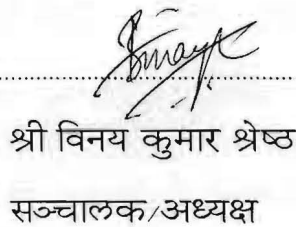 श्री विनय कुमार श्रेष्ठ
सञ्चालक/अध्यक्ष